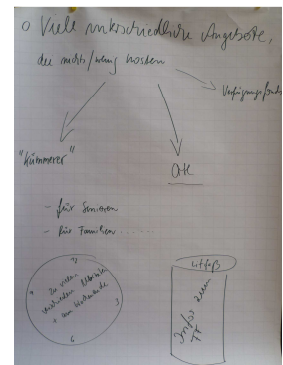 o Viele unterschiedliche Angebote,
die nichts/wenig kosten
Verfügungsfonds
"Kümmerer"
Orte
- für Senioren
- für Familien ......
12
zu vielen
verschieden
+ am Wochenende
9
3
6
Litfaß
Infos zum